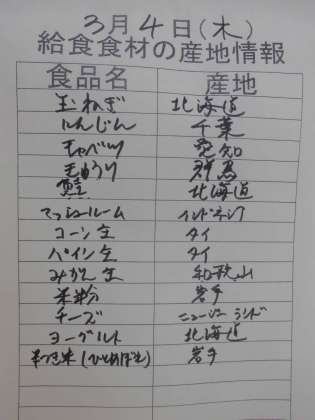 3月4日(木)
給食食材の産地情報
食品名 産地
玉ねぎ 北海道
にんじん 千葉
キャベツ 愛知
きゅうり 群馬
鮭 北海道
マッシュルーム インドネシア
コーン缶 タイ
パイン缶 タイ
みかん缶 和歌山
米粉 岩手
チーズ ニュージーランド
ヨーグルト 北海道
(ひとめぼれ) 岩手